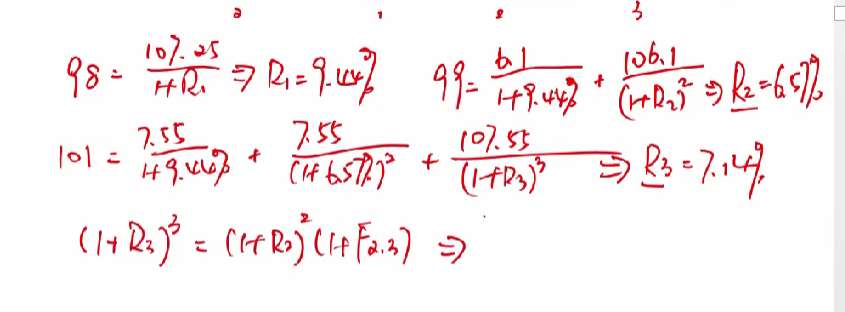 0 1 2 3
98 = 107.25 / (1+R₁) ⇒ R₁ = 9.44% 99 = 6.1 / (1+9.44%) + 106.1 / (1+R₂)² ⇒ R₂ = 6.57%
101 = 7.55 / (1+9.44%) + 7.55 / (1+6.57%)² + 107.55 / (1+R₃)³ ⇒ R₃ = 7.14%
(1+R₃)³ = (1+R₂)² (1+F₂.₃) ⇒